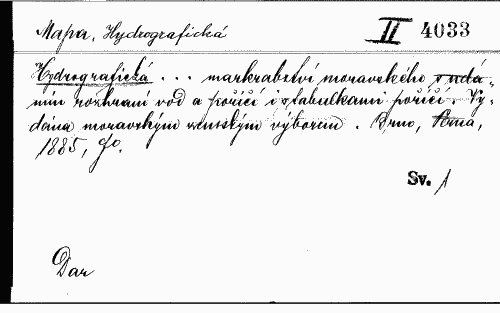 Mapa, Hydrografická
II 4033
Hydrografická ... markrabství moravského s udá-
ním rozhraní vod a poříčí i s tabulkami poříčí. Vy-
dána moravským zemským výborem. Brno,
1885, fo.
Sv. 1
Dar